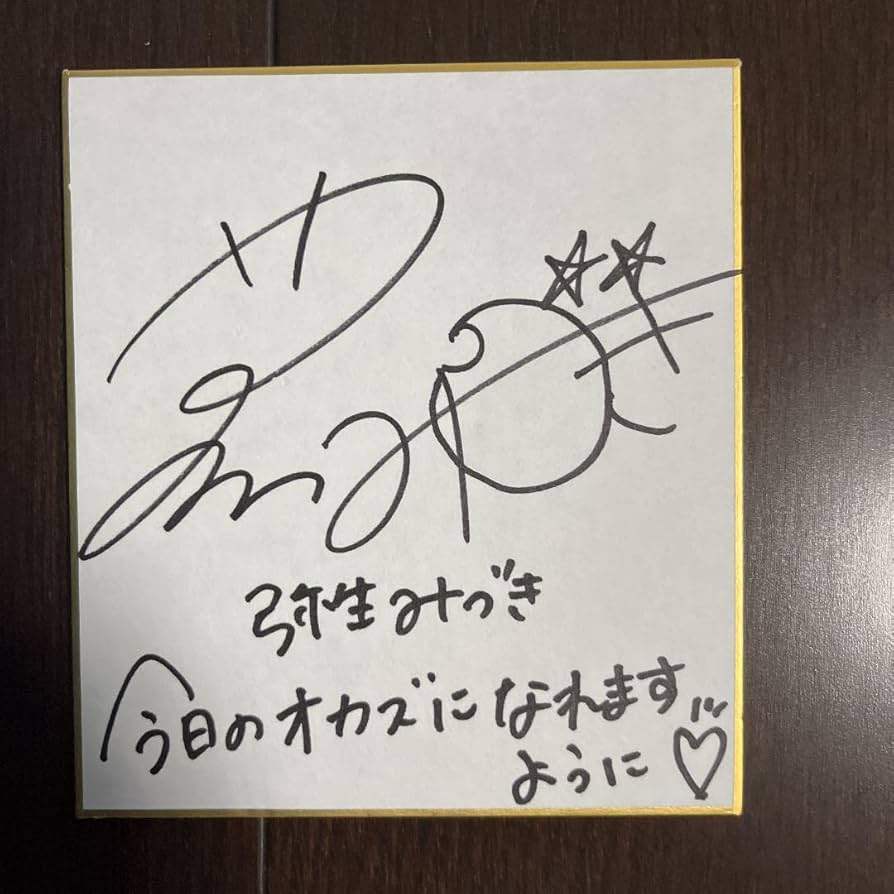 弥生みづき
今日のオカズになれます
ように♡